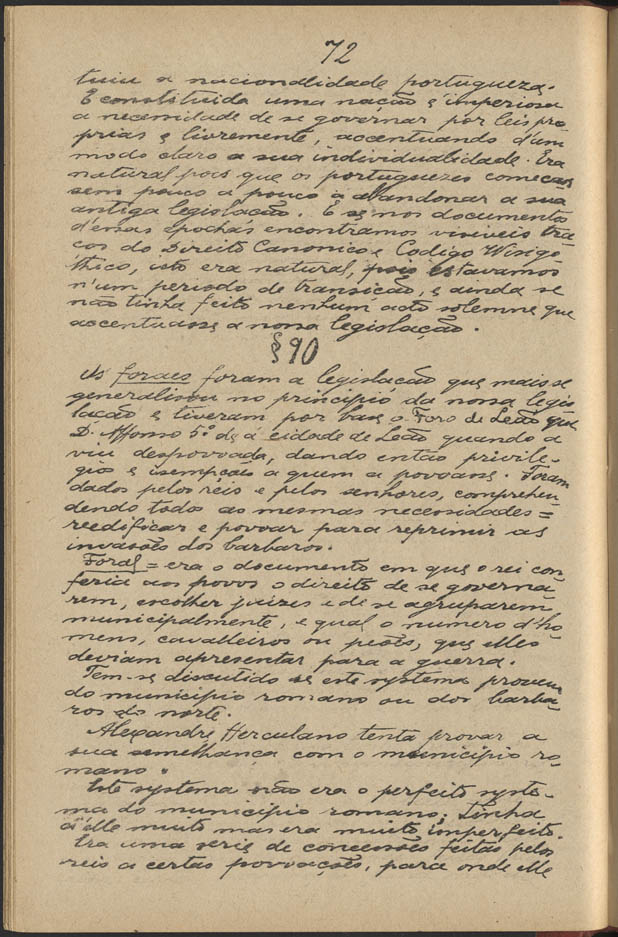 72
tuiu a nacionalidade portugueza.
E constituida uma nação é imperiosa
a necessidade de se governar por leis pro-
prias e livremente, accentuando d'um
modo claro a sua individualidade. Era
natural pois que os portuguezes começas-
sem pouco a pouco a abandonar a sua
antiga legislação. E se nos documentos
d'essas épochas encontramos visiveis tra-
cos do Direito Canonico e Codigo Wisigo-
thico, isto era natural, pois estavamos
n'um periodo de transição, e ainda se
não tinha feito nenhum acto solemne que
accentuasse a nossa legislação.
§ 90
Os foraes foram a legislacão que mais se
generalisou no principio da nossa legis-
lacão e tiveram por base o Foro de Leão que
D. Affonso 5º dá á cidade de Leão quando a
viu despovoada, dando então privile-
gios e isempcões a quem a povoasse. Foram
dados pelos reis e pelos senhores, comprehen-
dendo todos as mesmas necessidades =
reedificar e povoar para reprimir as
invasões dos barbaros.
Foral = era o documento em que o rei con-
feria aos povos o direito de se governa-
rem, escolher juizes e de se agruparem
municipalmente, e qual o numero d'ho-
mens, cavalleiros ou peões, que elles
deviam apresentar para a guerra.
Tem-se discutido se este systema proveiu
do municipio romano ou dos barba-
ros do norte.
Alexandre Herculano tenta provar a
sua semelhança com o municipio ro-
mano.
Este systema não era o perfeito syste-
ma do municipio romano; tinha
d'elle muito mas era muito imperfeito.
Era uma serie de concessões feitas pelos
reis a certas povoações, para onde elle